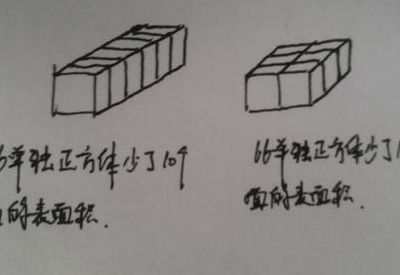 6单独正方体少了10个
面的表面积.
比6单独正方体少了1
面的表面积.